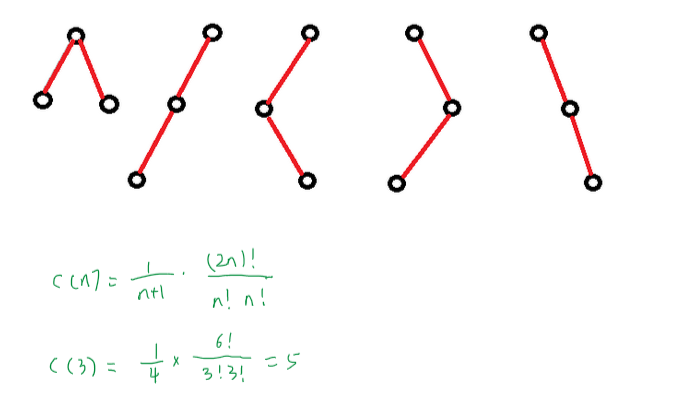 C(n) = 1/(n+1) · (2n)!/(n! n!)
C(3) = 1/4 × 6!/(3!3!) = 5